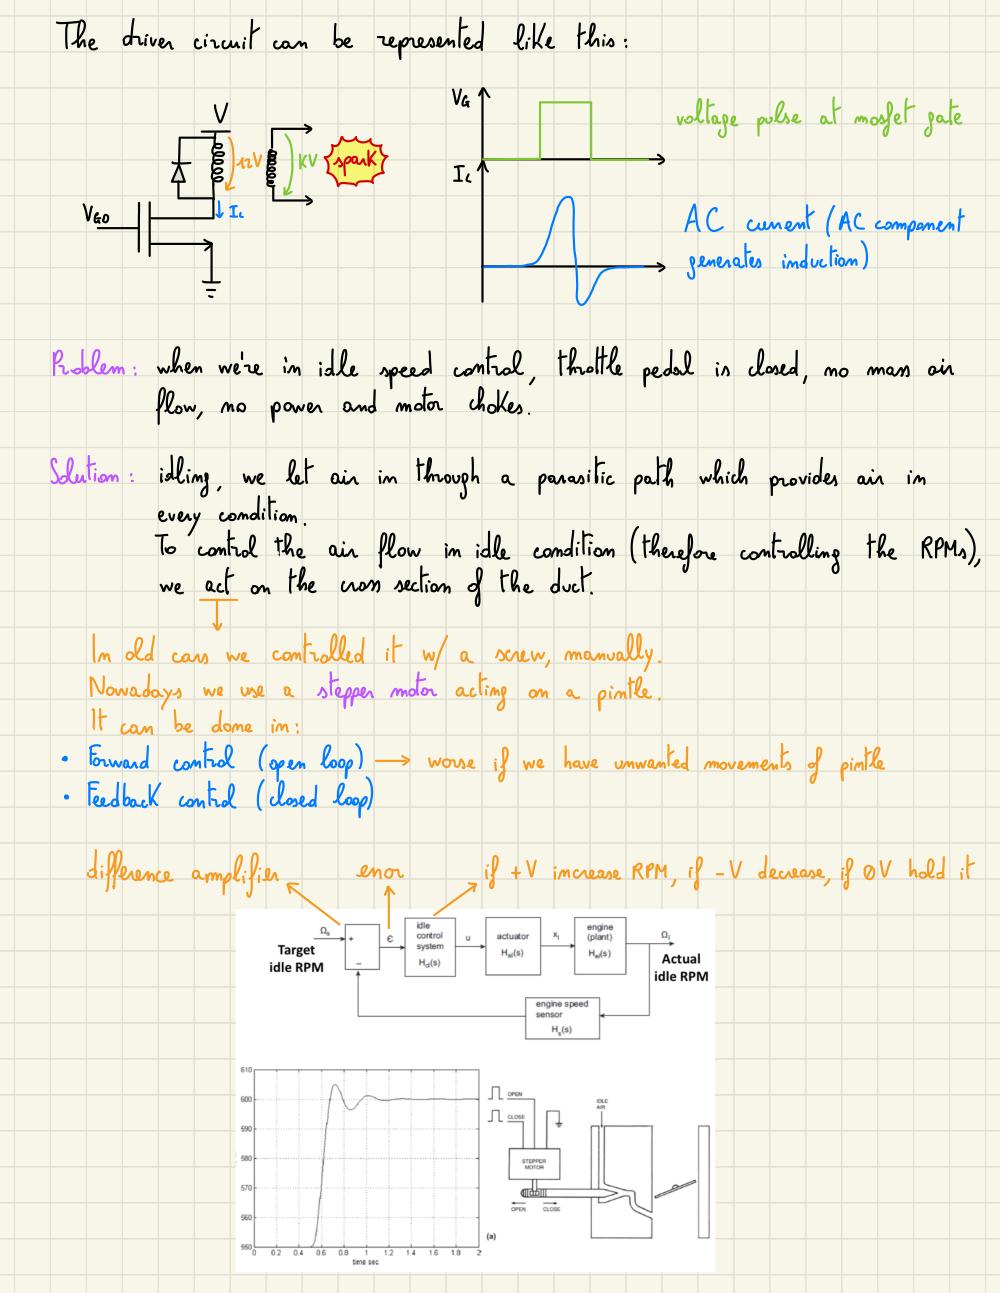 The driver circuit can be represented like this:
V
12V
KV
spark
IL
VGO
VG
IL
voltage pulse at mosfet gate
AC current (AC component
generates induction)
Problem: when we're in idle speed control, throttle pedal is closed, no mass air
flow, no power and motor chokes.
Solution: idling, we let air in through a parasitic path which provides air in
every condition.
To control the air flow in idle condition (therefore controlling the RPMs),
we act on the cross section of the duct.
In old cars we controlled it w/ a screw, manually.
Nowadays we use a stepper motor acting on a pintle.
It can be done in:
• Forward control (open loop) → worse if we have unwanted movements of pintle
• Feedback control (closed loop)
difference amplifier
error
if +V increase RPM, if -V decrease, if 0V hold it
Ωs
Target
idle RPM
+
−
Є
idle
control
system
Hci(s)
u
actuator
Hai(s)
xi
engine
(plant)
Hei(s)
Ωi
Actual
idle RPM
engine speed
sensor
Hs(s)
610
600
590
580
570
560
550
0 0.2 0.4 0.6 0.8 1 1.2 1.4 1.6 1.8 2
time sec
OPEN
CLOSE
STEPPER
MOTOR
OPEN CLOSE
IDLE
AIR
(a)